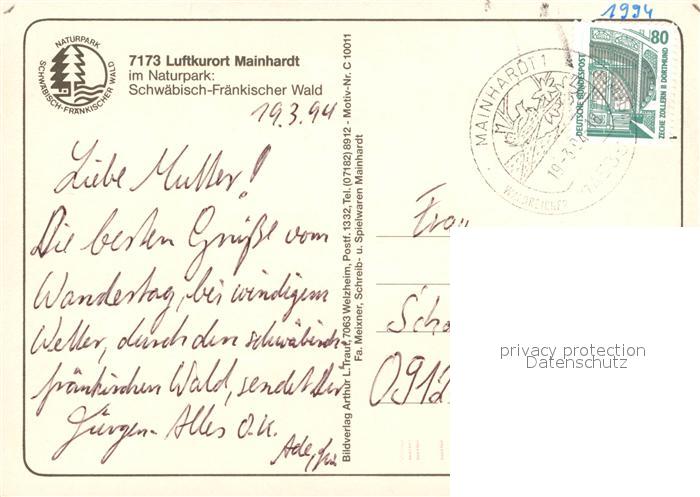 1994
NATURPARK
SCHWÄBISCH-FRÄNKISCHER WALD
7173 Luftkurort Mainhardt
im Naturpark:
Schwäbisch-Fränkischer Wald
19.3.94
Liebe Mutter!
Die besten Grüße vom
Wandertag, bei windigem
Wetter, durch den schwäbisch
fränkischen Wald, sendet Dir
Jürgen. Alles O.K.
Ade,
Bildverlag Arthur L. Traut, 7063 Welzheim, Postf. 1332, Tel. (07182) 8912 - Motiv-Nr. C 10011
Fa. Meixner, Schreib- u. Spielwaren Mainhardt
MAINHARDT 1
80
DEUTSCHE BUNDESPOST
ZECHE ZOLLERN II DORTMUND
Frau
Scho
0912
privacy protection
Datenschutz